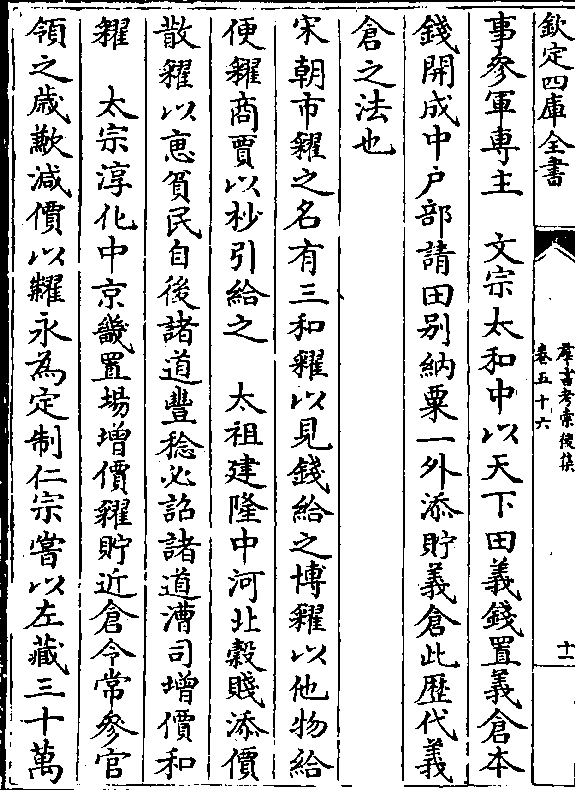 欽定四庫全書
羣書考索後集
卷五十六
十一
事參軍專主　文宗太和中以天下田義錢置義倉本
錢開成中户部請田别納粟一外添貯義倉此歴代義
倉之法也
宋朝市糴之名有三和糴以見錢給之博糴以他物給
便糴商賈以杪引給之　太祖建隆中河北穀賤添價
散糴以恵貧民自後諸道豐稔必詔諸道漕司增價和
糴　太宗淳化中京畿置場增價糴貯近倉令常參官
領之歲歉減價以糶永為定制仁宗嘗以左藏三十萬